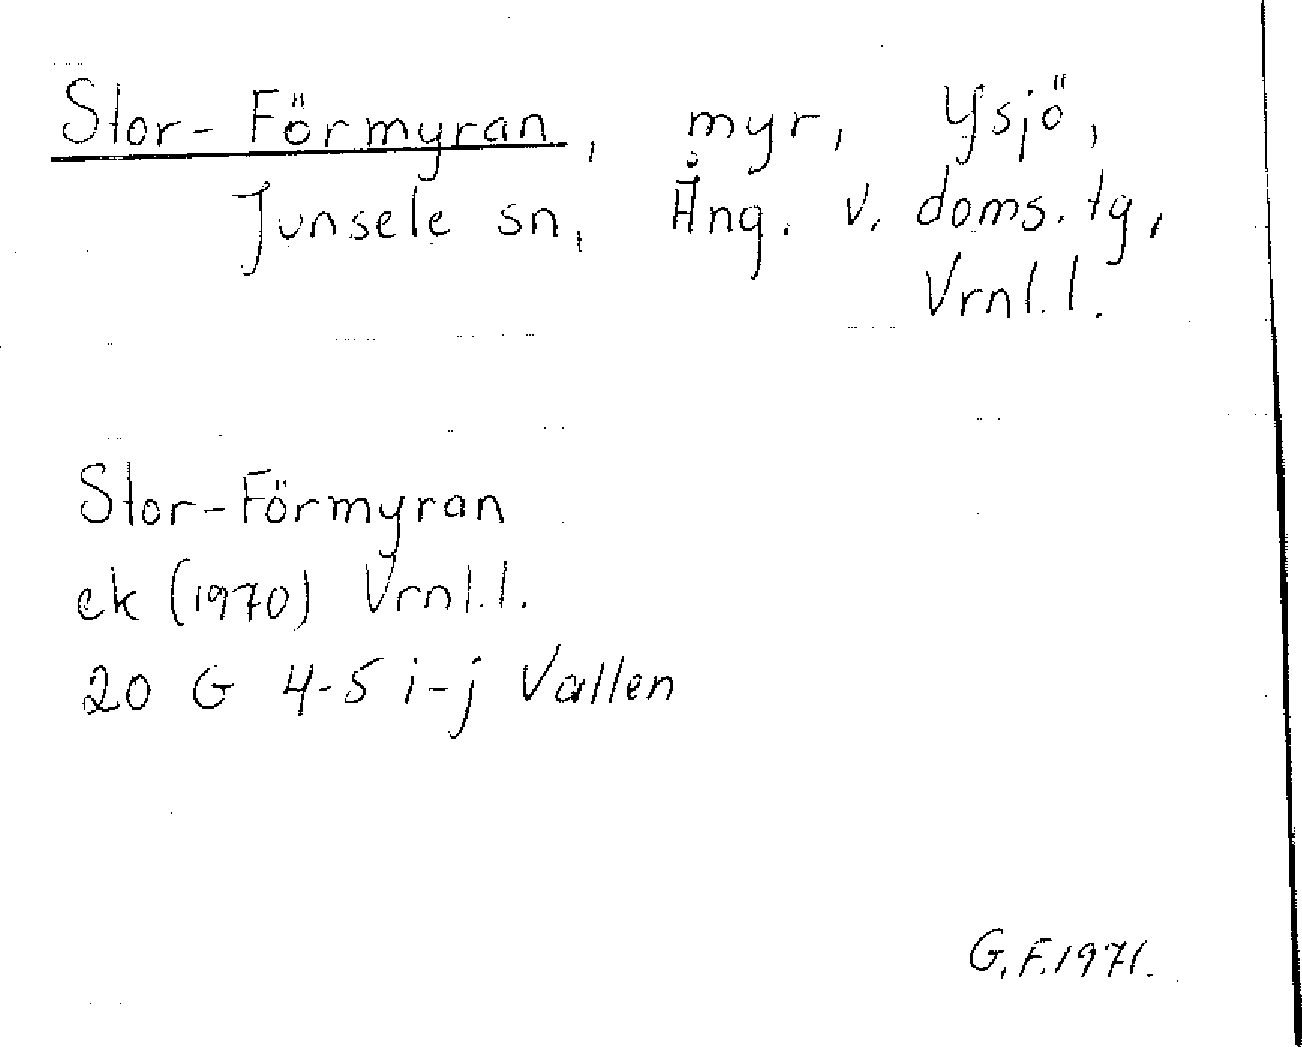 Stor-Förmyran, myr, Ysjö,
Junsele sn, Ång. v. doms. tg,
Vrnl. l.
Stor-Förmyran
ek (1970) Vrnl. l.
20 G 4-5 i-j Vallen
G. F. 1971.